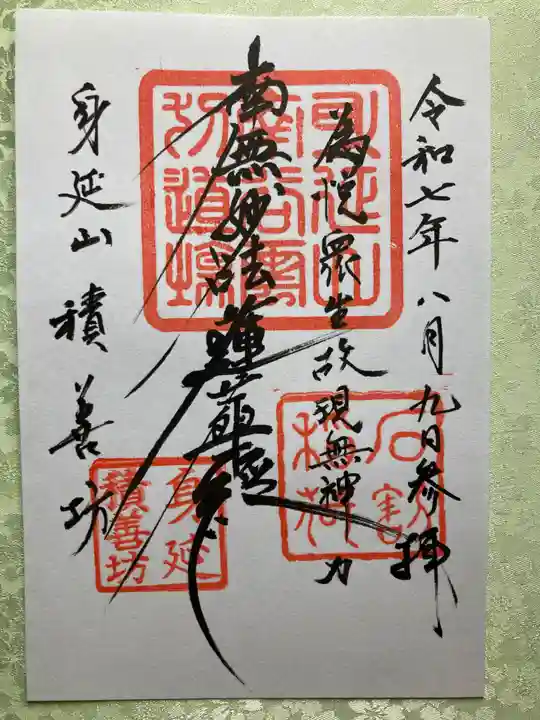 令和七年八月九日参拝
為悦衆生故現無神力
南無妙法蓮華経
身延山積善坊
石割
身延
積善坊